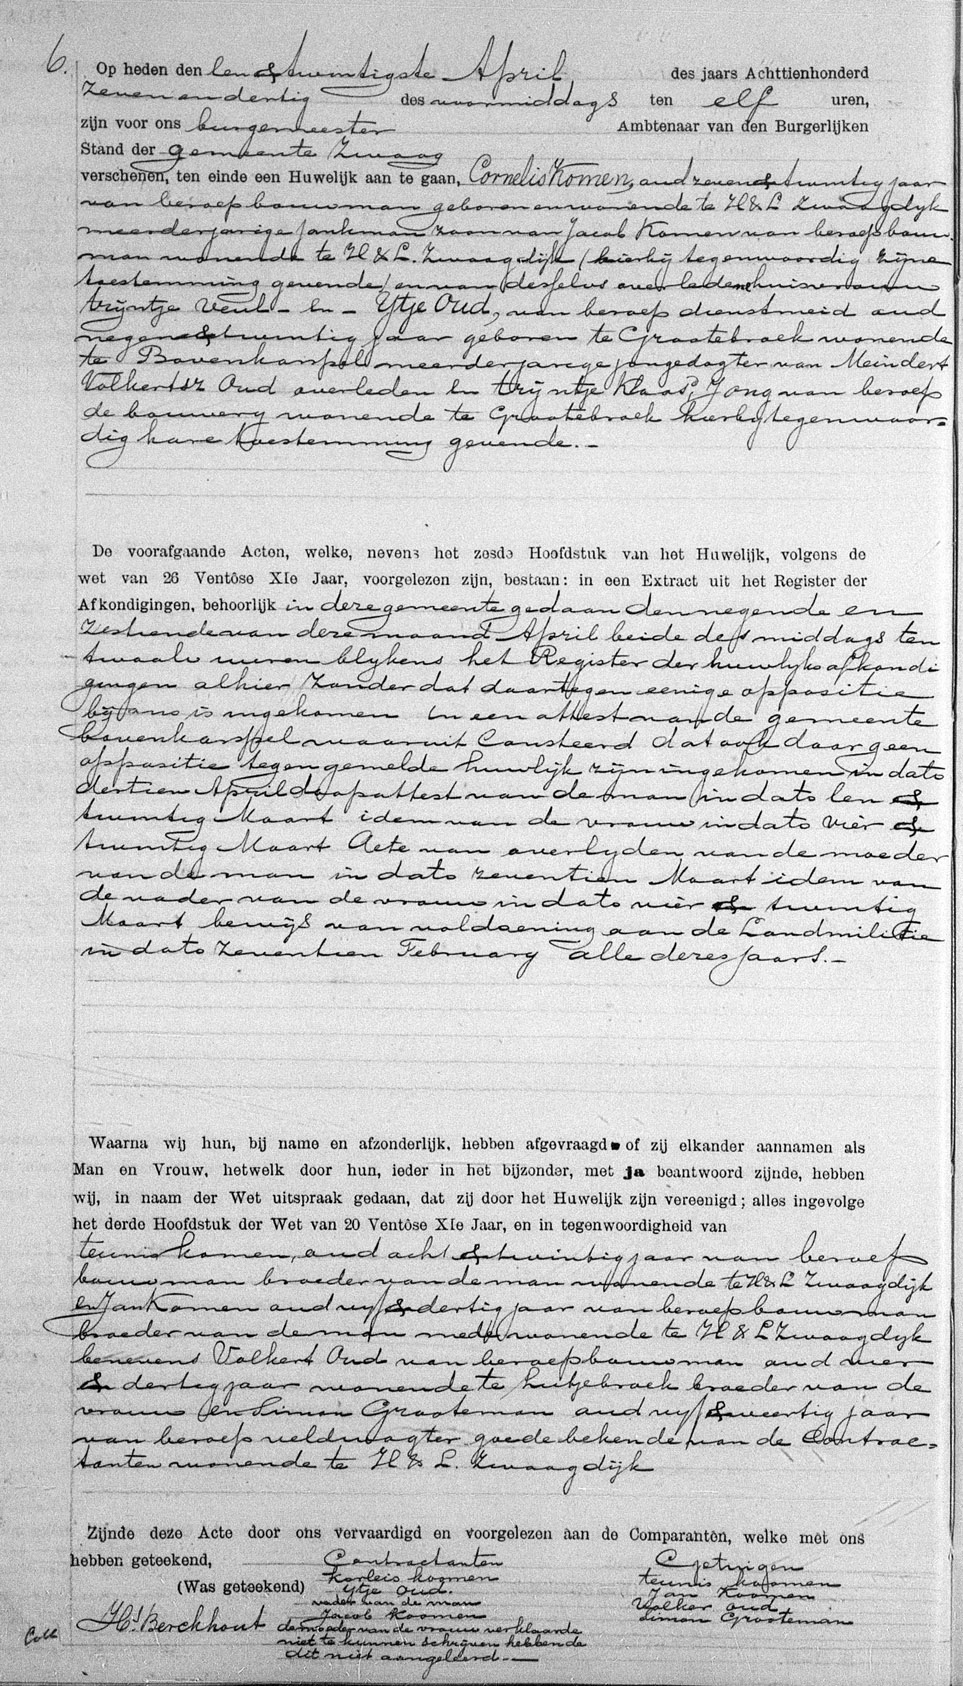 6.
Op heden den Een & twintigste April des jaars Achttienhonderd
Zeven en dertig des voormiddags ten elf uren,
zijn voor ons burgemeester Ambtenaar van den Burgerlijken
Stand der gemeente Zwaag
verschenen, ten einde een Huwelijk aan te gaan, Cornelis Komen, oud zeven & twintig jaar
van beroep bouwman geboren en wonende te H & L Zwaagdyk
meerderjarige jonkman zoon van Jacob Komen van beroep bouw-
man wonende te H & L. Zwaagdijk (hierbij tegenwoordig zijne
toestemming gevende) en van deszelvs overledene huisvrouw
trijntje Veul - En - Ytje Oud, van beroep dienstmeid oud
negen & twintig jaar geboren te Grootebroek wonende
te Bovenkarspel meerderjarige jongedogter van Meindert
Volkertsz Oud overleden En trijntje Klaas Jong van beroep
de bouwery wonende te Grootebroek hierbytegenwoor=
dig hare toestemming gevende. -
De voorafgaande Acten, welke, nevens het zesde Hoofdstuk van het Huwelijk, volgens de
wet van 26 Ventôse XIe Jaar, voorgelezen zijn, bestaan: in een Extract uit het Register der
Afkondigingen, behoorlijk in deze gemeente gedaan den negende en
Zestiende van deze maand April beide des middags ten
twaalv uuren blykens het Register der huwlyks afkondi
gingen alhier Zonder dat daartegen eenige oppositie
bij ons is ingekomen En een attest van de gemeente
bovenkarspel waaruit Consteerd dat ook daar geen
oppositie tegen gemelde huwlijk zijn ingekomen in dato
dertien April doopattest van de man in dato Een &
twintig Maart idem van de vrouw in dato Vier &
twintig Maart Acte van overlyden van de moeder
van de man in dato zeventien Maart idem van
de vader van de vrouw in dato vier & twintig
Maart bewijs van voldoening aan de Landmilitie
in dato Zeventien February alle dezes jaars. -
Waarna wij hun, bij name en afzonderlijk, hebben afgevraagd of zij elkander aannamen als
Man en Vrouw, hetwelk door hun, ieder in het bijzonder, met ja beantwoord zijnde, hebben
wij, in naam der Wet uitspraak gedaan, dat zij door het Huwelijk zijn vereenigd; alles ingevolge
het derde Hoofdstuk der Wet van 20 Ventôse XIe Jaar, en in tegenwoordigheid van
teunis komen, oud acht & twintig jaar van beroep
bouwman broeder van de man wonende te H & L Zwaagdijk
en Jan Komen oud vyf & dertig jaar van beroep bouwman
broeder van de man mede wonende te H & L Zwaagdyk
benevens Volkert Oud van beroep bouwman oud vier
& dertig jaar wonende te Lutjebroek broeder van de
vrouw en Simon Grooteman oud vyf & veertig jaar
van beroep veldwagter goede bekende van de Contrac=
tanten wonende te H & L. Zwaagdijk
Zijnde deze Acte door ons vervaardigd en voorgelezen aan de Comparanten, welke met ons
hebben geteekend, Contractanten Getuigen
(Was geteekend) Korleis koomen teunis koomen
Ytje oud. Jan Koomen
vader van de man Volker oud
Jacob Koomen Simon Grooteman
Hs. Berckhout de moeder van de vrouw verklaarde
Coll niet te kunnen schrijven hebbende
dit niet aangeleerd. -